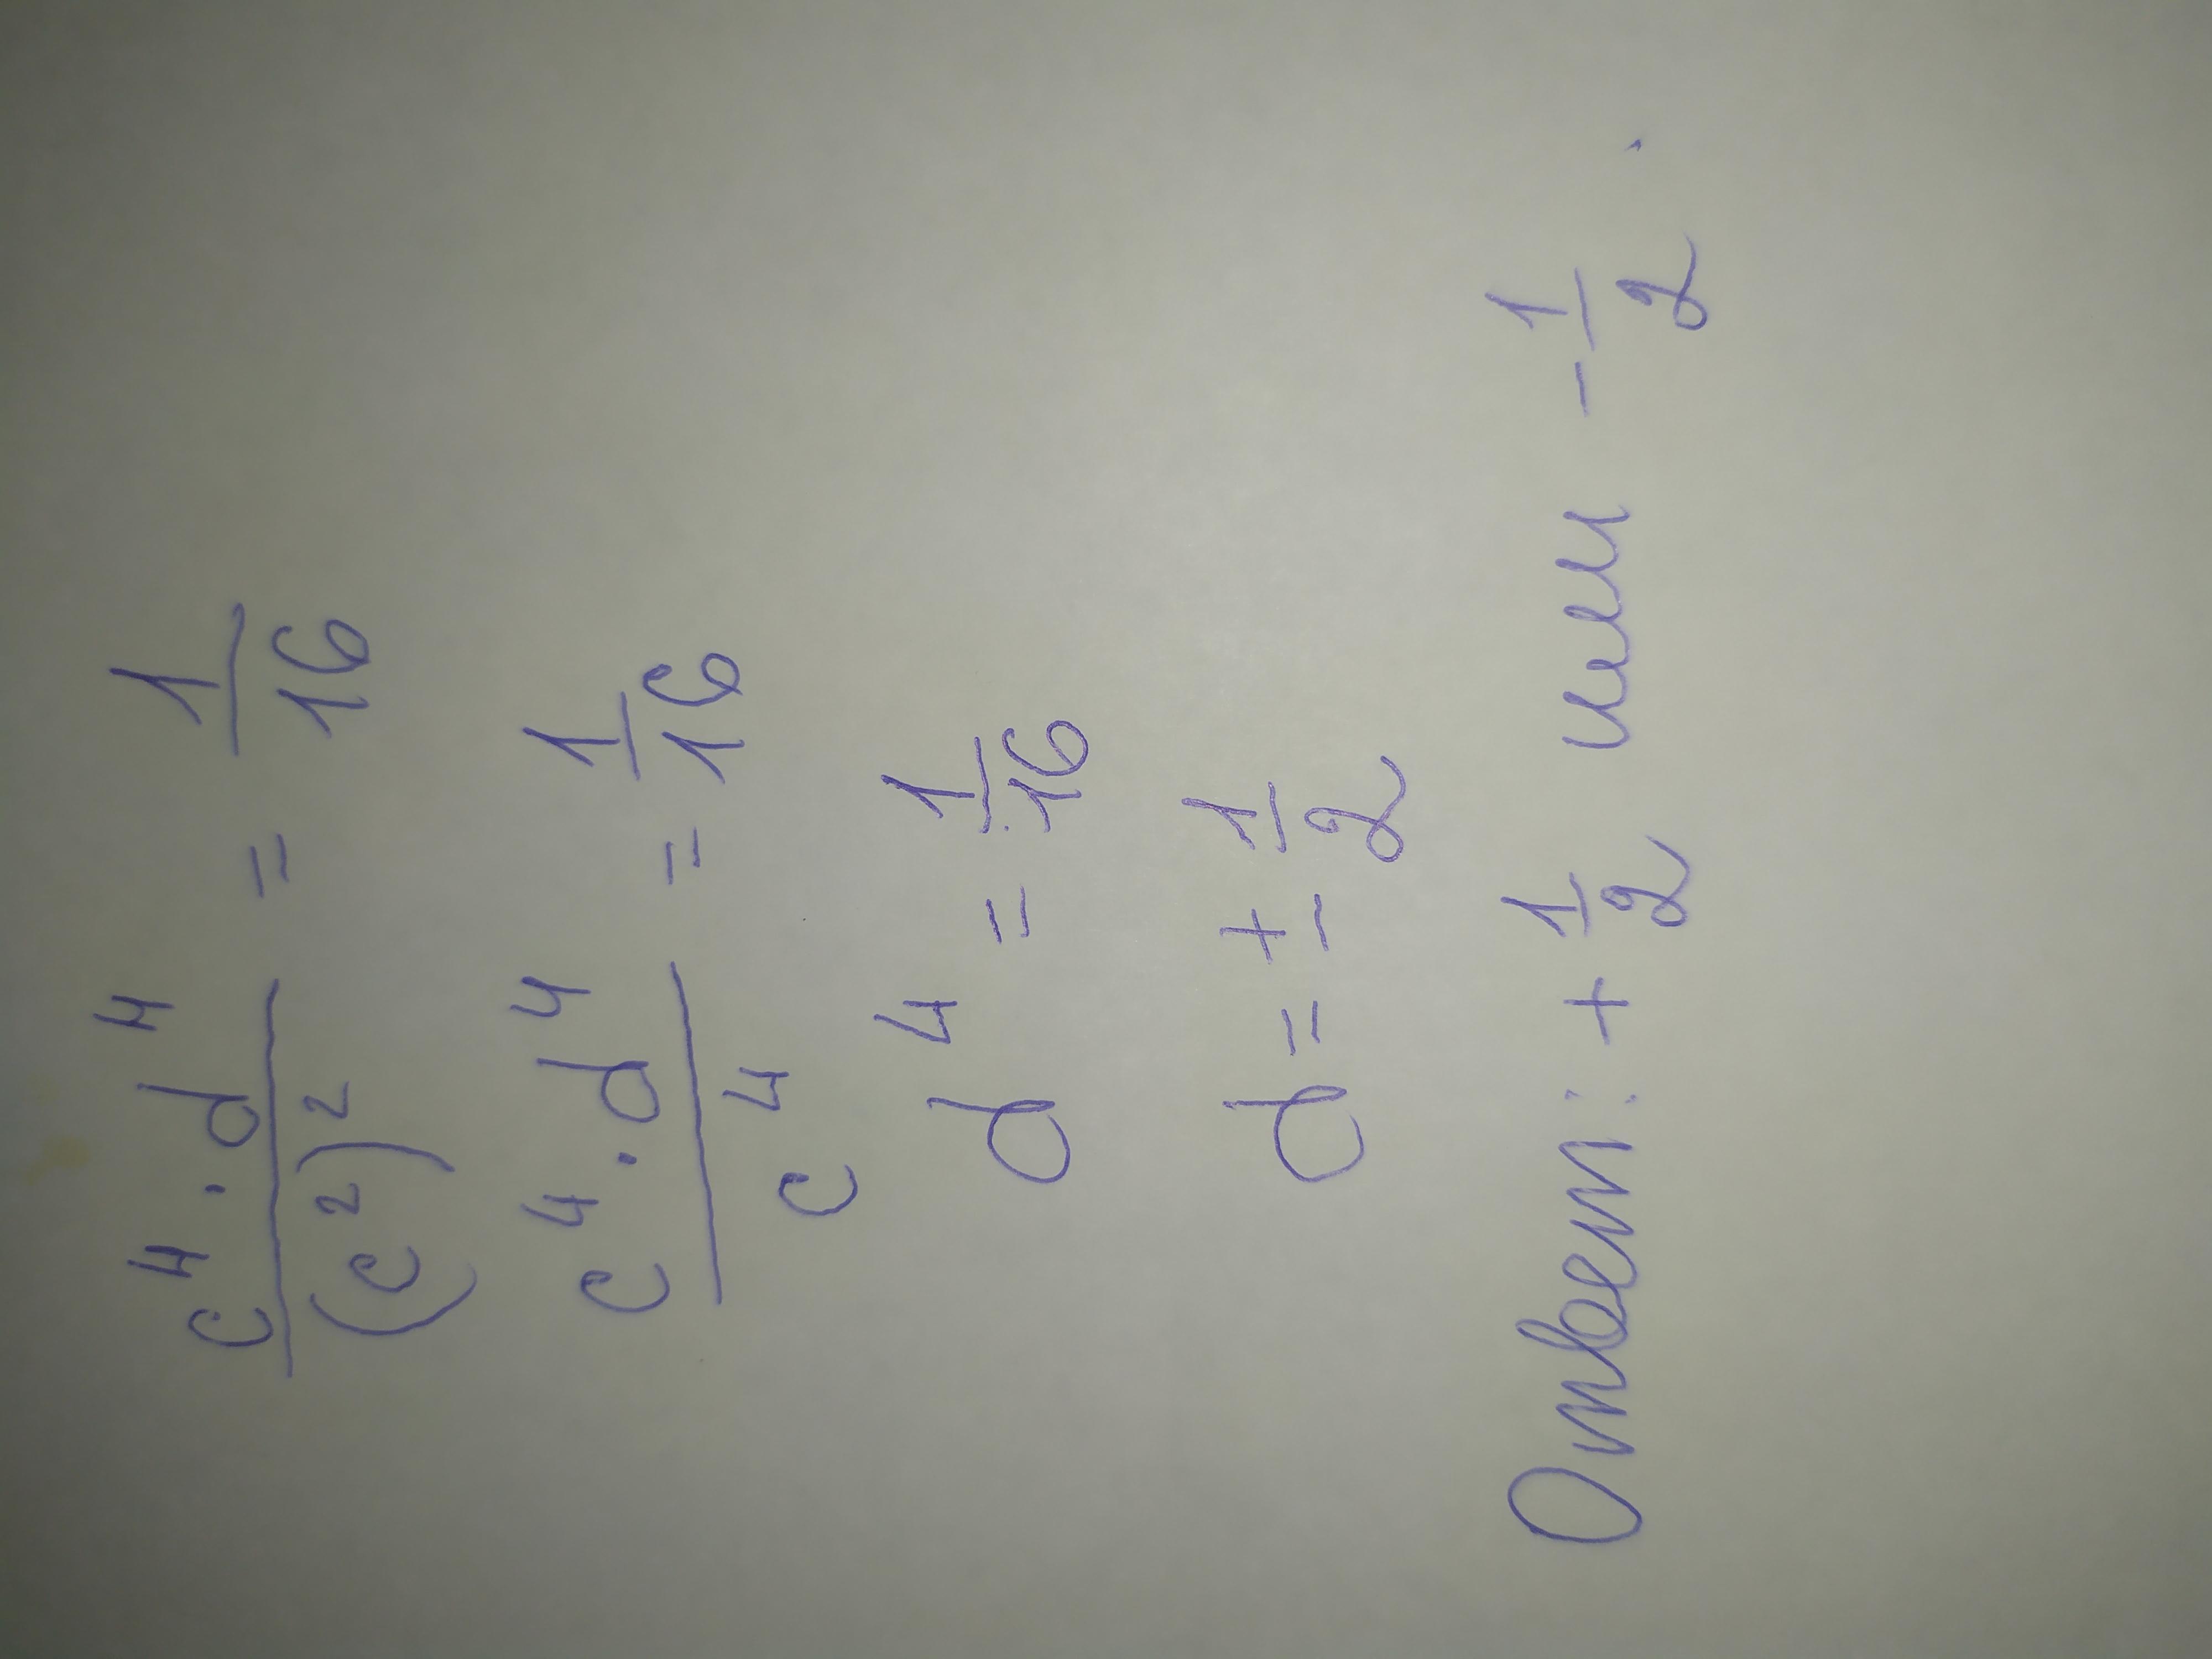 c⁴ · d⁴ / (c²)² = 1/16
c⁴ · d⁴ / c⁴ = 1/16
d⁴ = 1/16
d = ± 1/2
Ответ: + 1/2 или - 1/2.